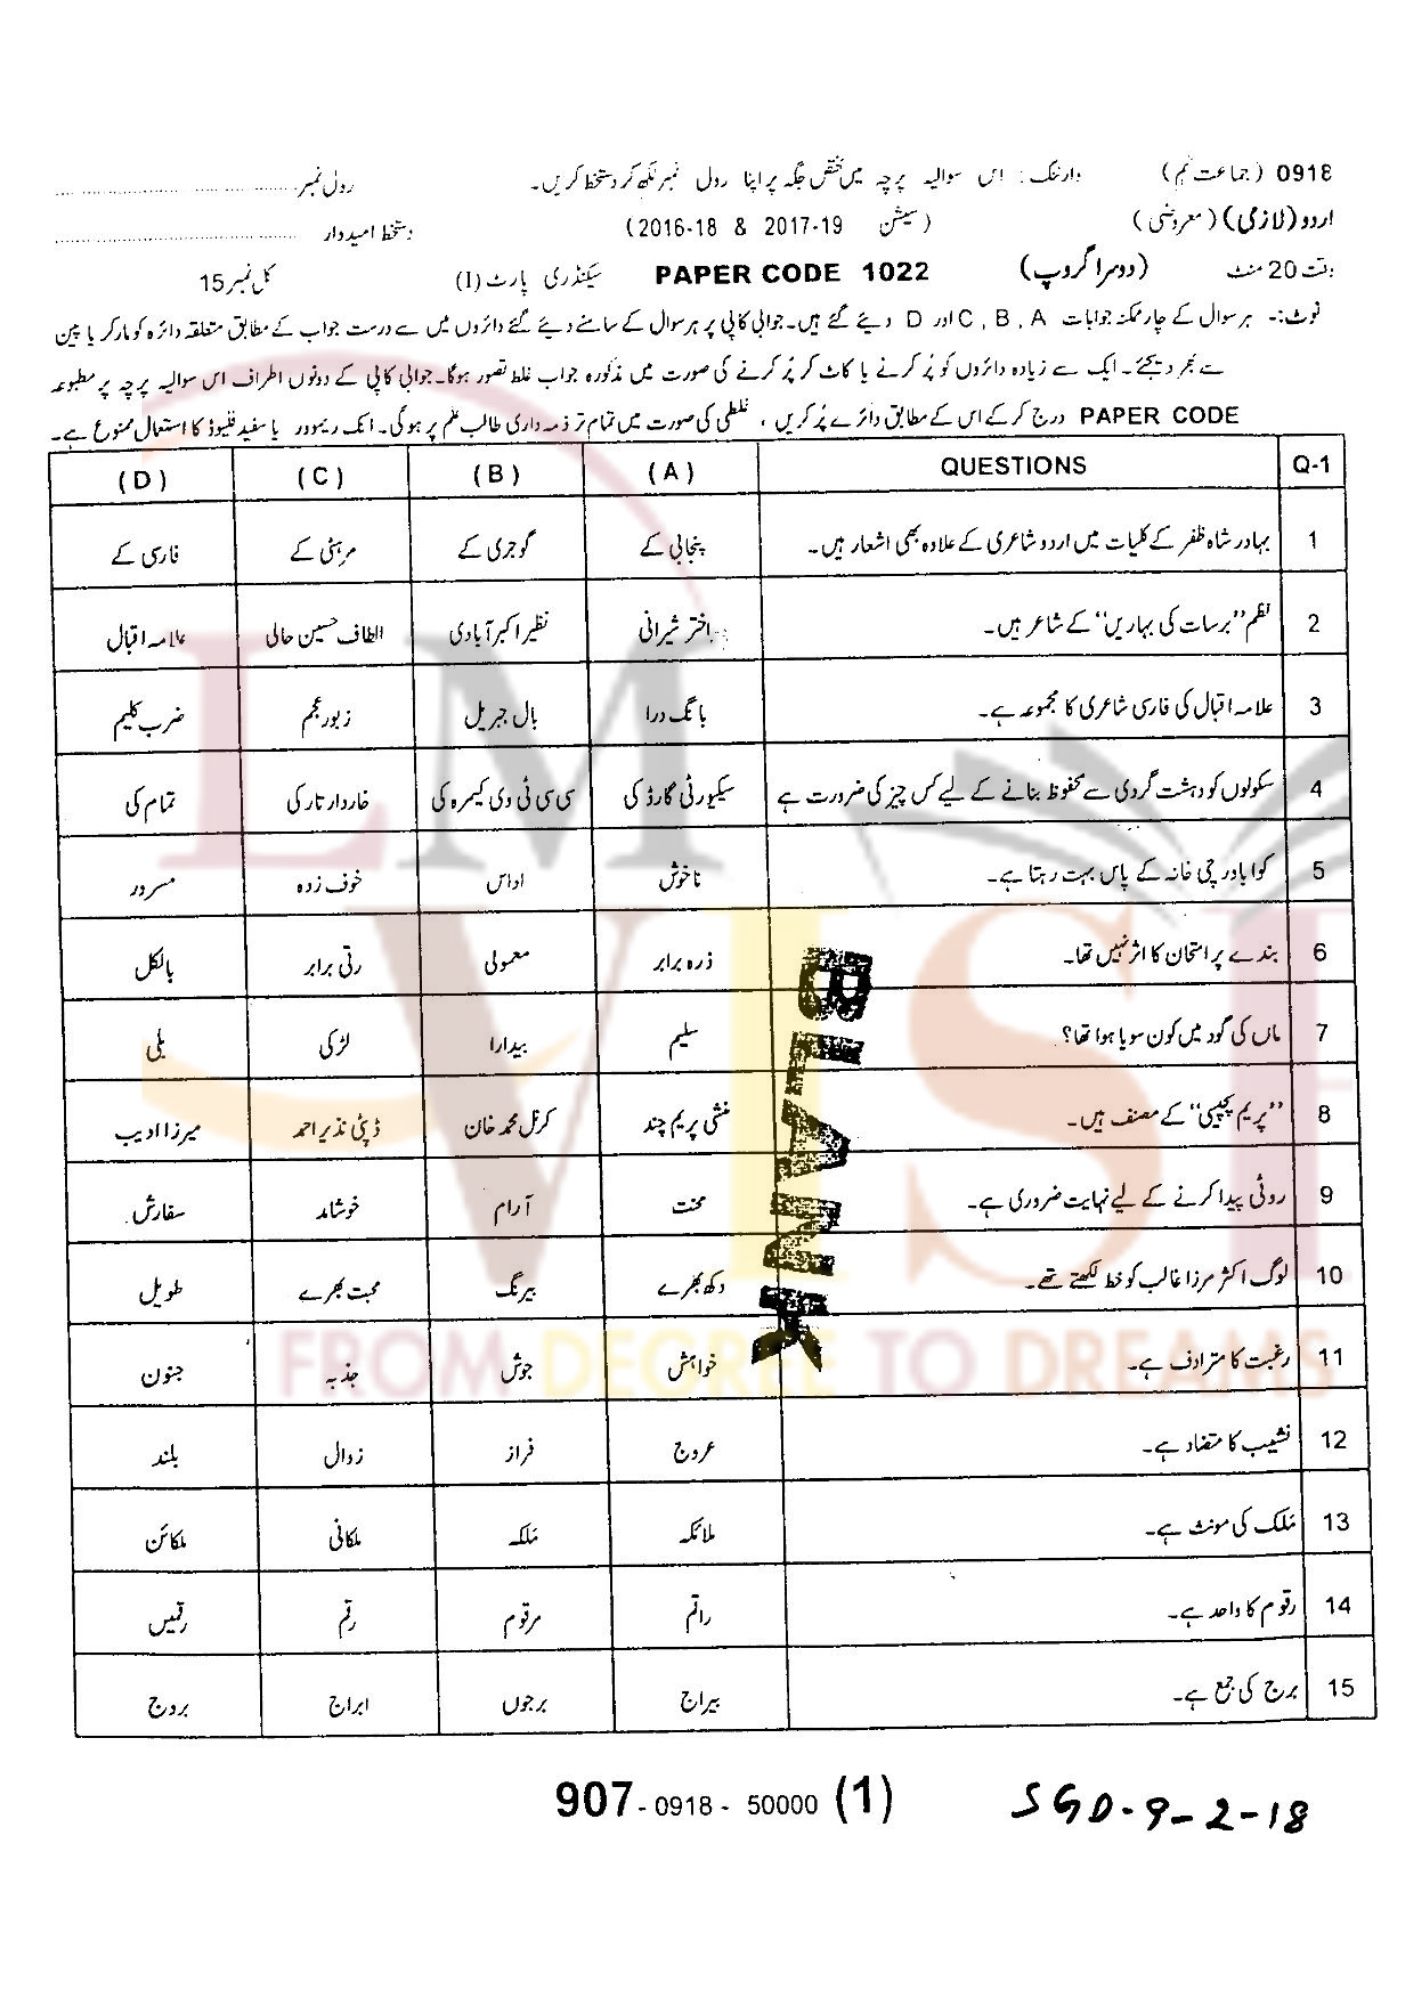 0918 (جماعت نہم) وارننگ: اس سوالیہ پرچہ میں مختص جگہ پر اپنا رول نمبر لکھ کر دستخط کریں۔ رول نمبر
اردو (لازمی) (معروضی) (سیشن 2016-18 & 2017-19) دستخط امیدوار
وقت 20 منٹ (دوسرا گروپ) PAPER CODE 1022 سیکنڈری پارٹ (I) کل نمبر 15
نوٹ:- ہر سوال کے چار ممکنہ جوابات C , B , A اور D دیئے گئے ہیں۔ جوابی کاپی پر ہر سوال کے سامنے دیئے گئے دائروں میں سے درست جواب کے مطابق متعلقہ دائرہ کو مارکر یا پین
سے بھر دیجئے۔ ایک سے زیادہ دائروں کو پُر کرنے یا کاٹ کر پُر کرنے کی صورت میں مذکورہ جواب غلط تصور ہوگا۔ جوابی کاپی کے دونوں اطراف اس سوالیہ پرچہ پر مطبوعہ
PAPER CODE درج کر کے اس کے مطابق دائرے پُر کریں ، غلطی کی صورت میں تمام تر ذمہ داری طالب علم پر ہوگی۔ انک ریموور یا سفید فلیوڈ کا استعمال ممنوع ہے۔
Q-1 QUESTIONS (A) (B) (C) (D)
1 بہادر شاہ ظفر کے کلیات میں اردو شاعری کے علاوہ بھی اشعار ہیں۔ پنجابی کے گوجری کے مرہٹی کے فارسی کے
2 نظم "برسات کی بہاریں" کے شاعر ہیں۔ اختر شیرانی نظیر اکبر آبادی الطاف حسین حالی علامہ اقبال
3 علامہ اقبال کی فارسی شاعری کا مجموعہ ہے۔ بانگ درا بال جبریل زبور عجم ضرب کلیم
4 سکولوں کو دہشت گردی سے محفوظ بنانے کے لیے کس چیز کی ضرورت ہے سیکیورٹی گارڈ کی سی سی ٹی وی کیمرہ کی خاردار تار کی تمام کی
5 کوا باورچی خانہ کے پاس بہت رہتا ہے۔ ناخوش اداس خوف زدہ مسرور
6 بندے پر امتحان کا اثر نہیں تھا۔ ذرہ برابر معمولی رتی برابر بالکل
7 ماں کی گود میں کون سویا ہوا تھا؟ سلیم بیدارا لڑکی بلی
8 "پریم پچیسی" کے مصنف ہیں۔ منشی پریم چند کرنل محمد خان ڈپٹی نذیر احمد میرزا ادیب
9 روئی پیدا کرنے کے لیے نہایت ضروری ہے۔ محنت آرام خوشامد سفارش
10 لوگ اکثر مرزا غالب کو خط لکھتے تھے۔ دکھ بھرے بیرنگ محبت بھرے طویل
11 رغبت کا مترادف ہے۔ خواہش جوش جذبہ جنون
12 نشیب کا متضاد ہے۔ عروج فراز زوال بلند
13 مَلک کی مونث ہے۔ ملائکہ مَلکہ ملکانی ملکائن
14 رقوم کا واحد ہے۔ راقم مرقوم رقم رقمیں
15 برج کی جمع ہے۔ بیراج برجوں ابراج بروج
BLANK
LM VISI
FROM DEGREE TO DREAMS
907-0918 - 50000 (1) SGD-9-2-18